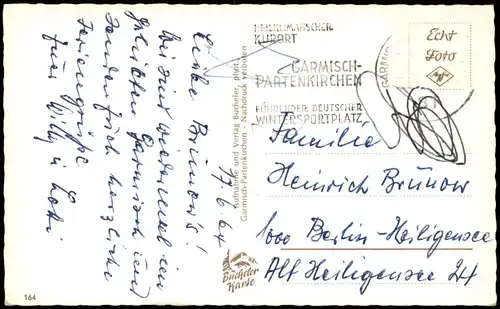 17.6.64
Liebe Brünow's!
Wir sind wiedermal im
geliebten Garmisch und
senden Euch herzliche
Feriengrüße
Eure Willy u. Lotti
Aufnahme und Verlag Bücheler, phot.
Garmisch-Partenkirchen - Nachdruck verboten
164
Bücheler
Karte
HEILKLIMATISCHER
KURORT
GARMISCH-
PARTENKIRCHEN
FÜHRENDER DEUTSCHER
WINTERSPORTPLATZ
GARMI
Echt
Foto
Agfa
Familie
Heinrich Brünow
1000 Berlin-Heiligensee
Alt Heiligensee 24